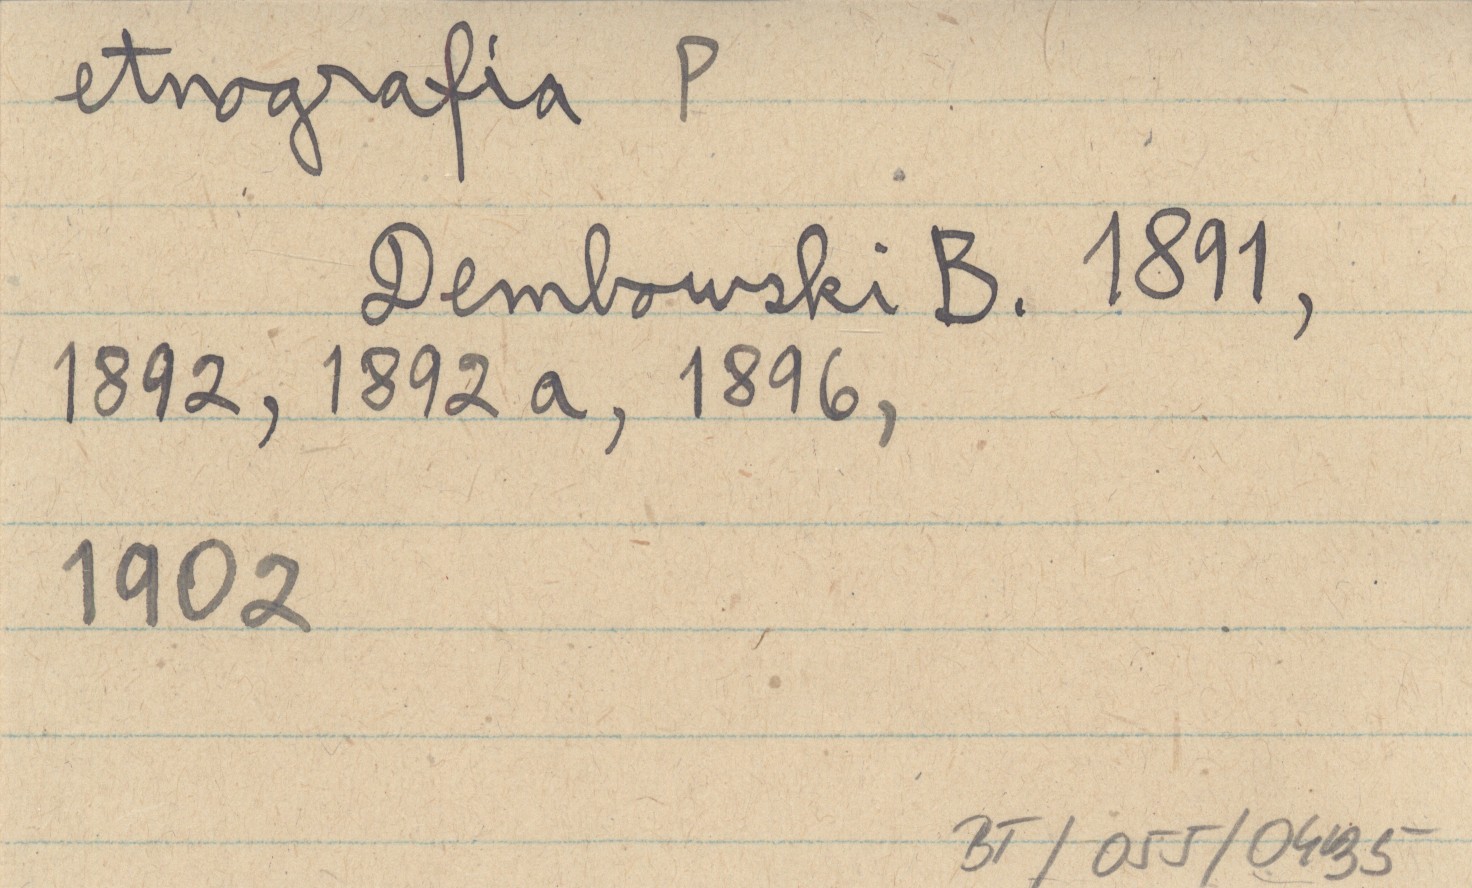 etnografia P
Dembowski B. 1891,
1892, 1892 a, 1896,
1902
BT / 055 /